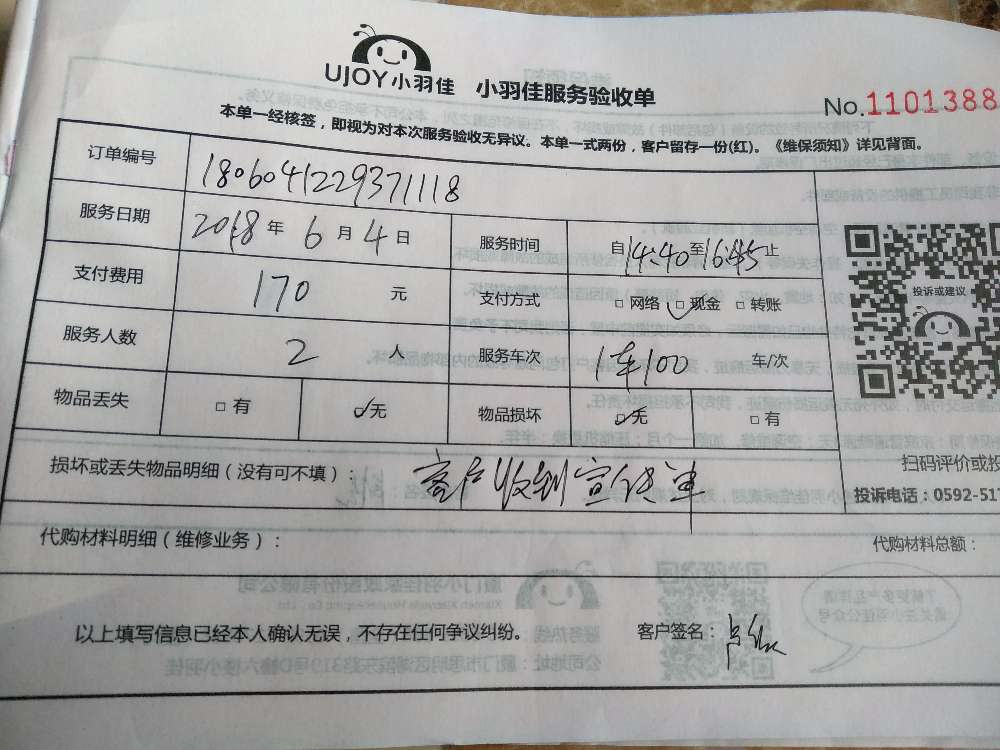 UJOY小羽佳 小羽佳服务验收单
No.1101388
本单一经核签，即视为对本次服务验收无异议。本单一式两份，客户留存一份(红)。《维保须知》详见背面。
订单编号 180604122937118
服务日期 2018年6月4日 服务时间 自14:40至16:45止
支付费用 170 元 支付方式 □ 网络 ☑ 现金 □ 转账
服务人数 2 人 服务车次 1车100 车/次
物品丢失 □ 有 ☑ 无 物品损坏 ☑ 无 □ 有
投诉或建议
损坏或丢失物品明细（没有可不填）： 客户收到宣传单
扫码评价或投
投诉电话：0592-517
代购材料明细（维修业务）： 代购材料总额：
以上填写信息已经本人确认无误，不存在任何争议纠纷。 客户签名：